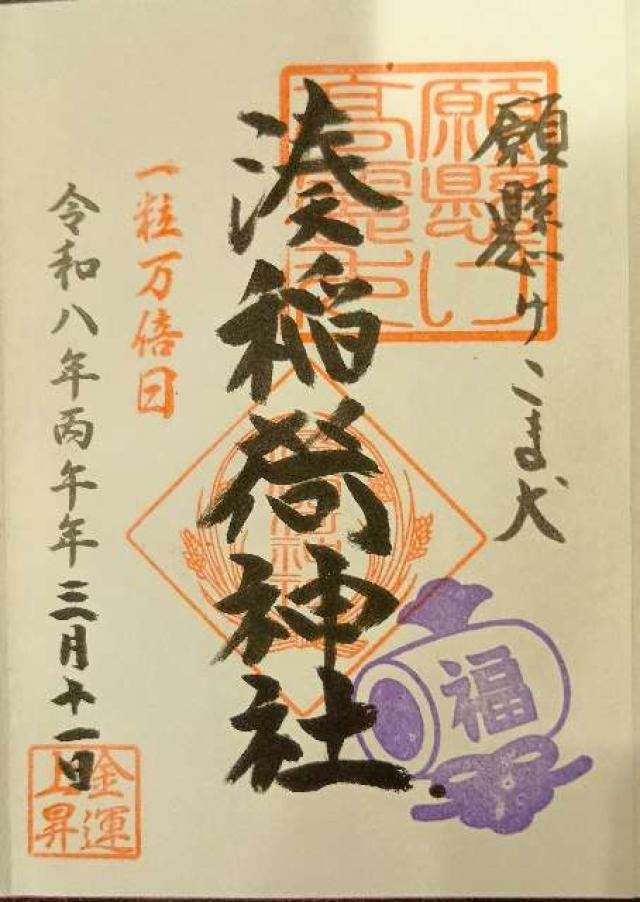 願懸けこま犬
願懸け
湊稲荷神社
福
一粒万倍日
令和八年丙午年三月十一日
金運
上昇